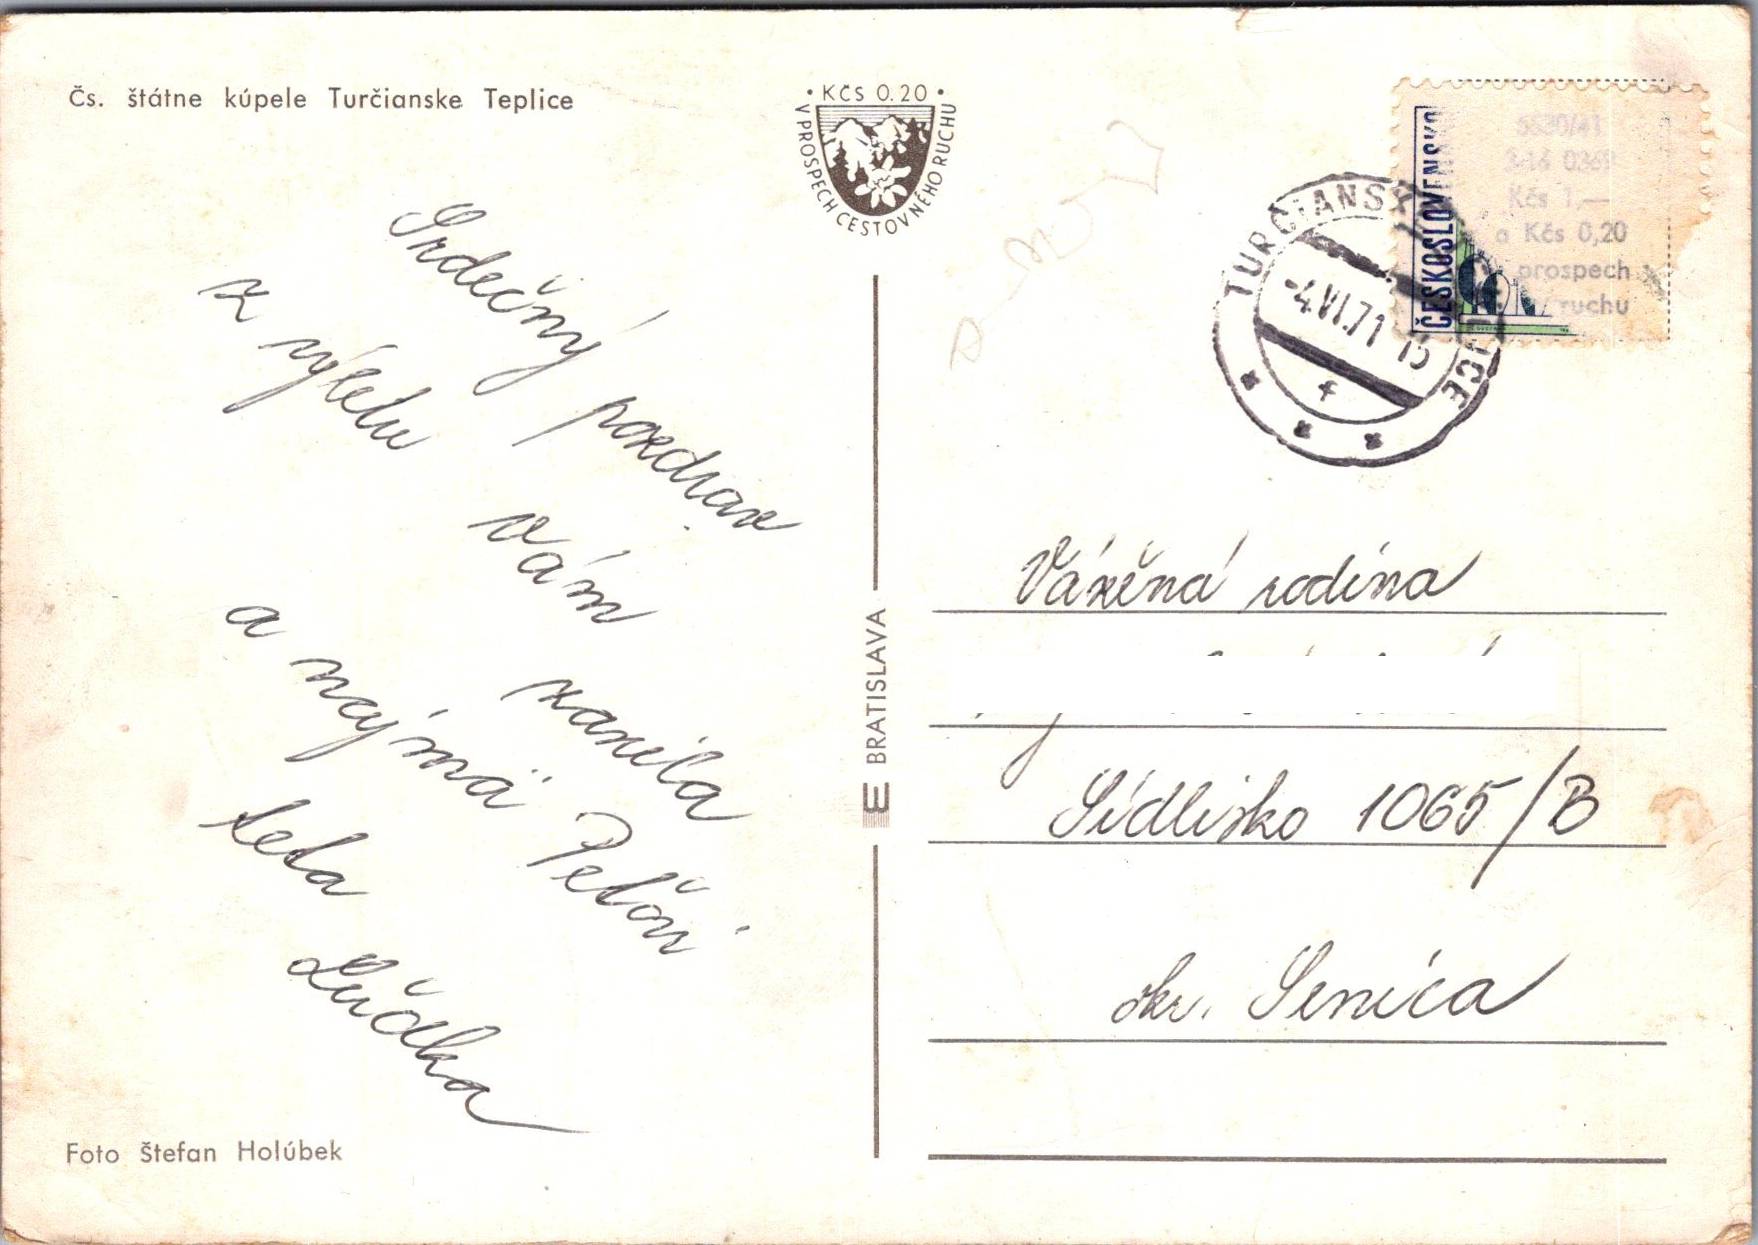 Čs. štátne kúpele Turčianske Teplice
• KČS 0.20 •
V PROSPECH CESTOVNÉHO RUCHU
Srdečný pozdrav
z výletu
Vám
zasiela
a najmä Peťovi
teta
Ľudka
Foto Štefan Holúbek
BRATISLAVA
ČESKOSLOVENSKO
5530/41
3-16 0369
Kčs 1,—
a Kčs 0,20
prospech
ruchu
TURČIANSK
ICE
-4.VI.71 15
f
Vážená rodina
Sídlisko 1065/B
okr. Senica